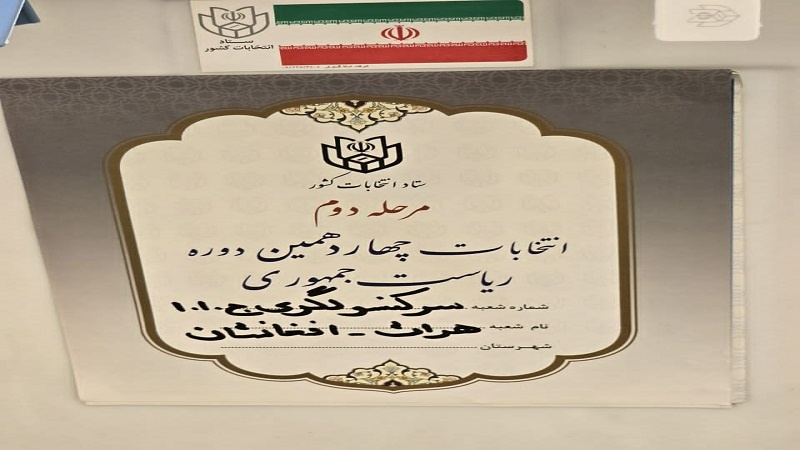 ستاد
انتخابات کشور
ستاد انتخابات کشور
مرحله دوم
انتخابات چهاردهمین دوره
ریاست جمهوری
شماره شعبه سرکنسولگری ج.ا.ا
نام شعبه هرات - افغانستان
شهرستان